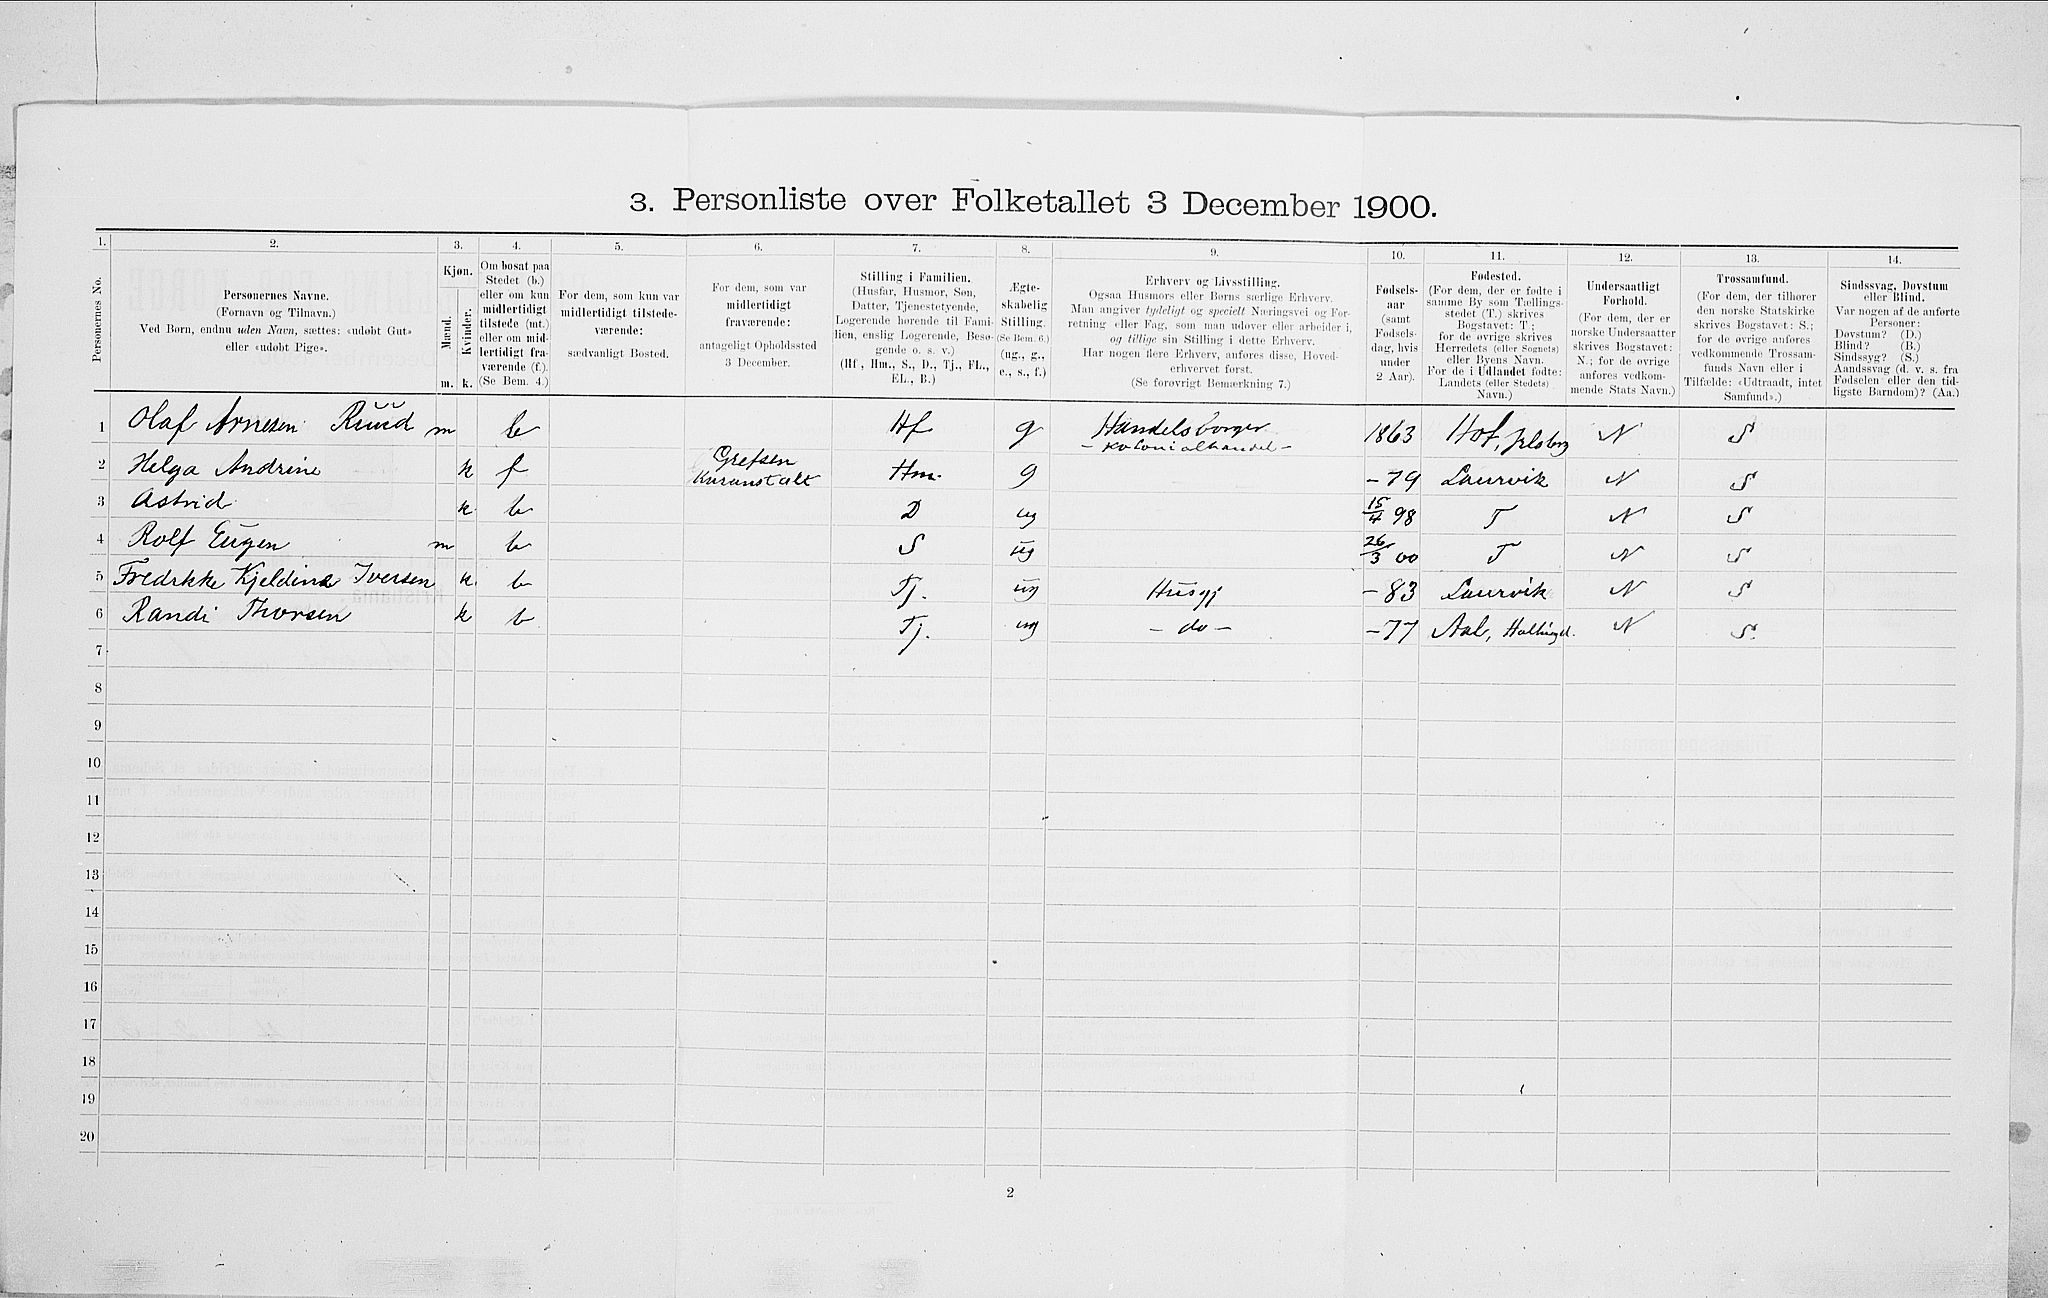 3. Personliste over Folketallet 3 December 1900.
1. 2. 3. 4. 5. 6. 7. 8. 9. 10. 11. 12. 13. 14.
Personernes No.
Personernes Navne.
(Fornavn og Tilnavn.)
Ved Børn, endnu uden Navn, sættes: «udøbt Gut»
eller «udøbt Pige».
Kjøn.
Mænd.
Kvinder.
m. k.
Om bosat paa
Stedet (b.)
eller om kun
midlertidigt
tilstede (mt.)
eller om mid-
lertidigt fra-
værende (f.).
(Se Bem. 4.)
For dem, som kun var
midlertidigt tilstede-
værende:
sædvanligt Bosted.
For dem, som var
midlertidigt
fraværende:
antageligt Opholdssted
3 December.
Stilling i Familien.
(Husfar, Husmor, Søn,
Datter, Tjenestetyende,
Logerende hørende til Fami-
lien, enslig Logerende, Besø-
gende o. s. v.)
(Hf., Hm., S., D., Tj., FL.,
EL., B.)
Ægte-
skabelig
Stilling.
(Se Bem. 6.)
(ug., g.,
e., s., f.)
Erhverv og Livsstilling.
Ogsaa Husmors eller Børns særlige Erhverv.
Man angiver tydeligt og specielt Næringsvei og For-
retning eller Fag, som man udover eller arbeider i,
og tillige sin Stilling i dette Erhverv.
Har nogen flere Erhverv, anføres disse, Hoved-
erhvervet først.
(Se forøvrigt Bemærkning 7.)
Fødsels-
aar
(samt
Fødsels-
dag, hvis
under
2 Aar).
Fødested.
(For dem, der er fødte i
samme By som Tællings-
stedet (T.) skrives
Bogstavet: T;
for de øvrige skrives
Herredets (eller Sognets)
eller Byens Navn.
For de i Udlandet fødte:
Landets (eller Stedets)
Navn.)
Undersaatligt
Forhold.
(For dem, der er
norske Undersaatter
skrives Bogstavet:
N.; for de øvrige
anføres vedkom-
mende Stats Navn.)
Trossamfund.
(For dem, der tilhører
den norske Statskirke
skrives Bogstavet: S.;
for de øvrige anføres
vedkommende Trossam-
funds Navn eller i
Tilfælde: «Udtraadt, intet
Samfund».)
Sindssvag, Døvstum
eller Blind.
Var nogen af de anførte
Personer:
Døvstum? (D.)
Blind? (B.)
Sindssyg? (S.)
Aandssvag (d. v. s. fra
Fødselen eller den tid-
ligste Barndom)? (Aa.)
1 Olaf Arnesen Ruud m b Hf g Handelsborger - kolonialhandel - 1863 Hof, Jrlsberg N S
2 Helga Andrine k f Grefsen Kuranstalt Hm. g -79 Laurvik N S
3 Astrid k b D ug 15/4 98 T N S
4 Rolf Eugen m b S ug 26/3 00 T N S
5 Fredrkke Kjeldine Iversen k b Tj. ug Husgj -83 Laurvik N S
6 Randi Thorsen k b Tj. ug - do - -77 Aal, Hallingd. N S.
7
8
9
10
11
12
13
14
15
16
17
18
19
20
2